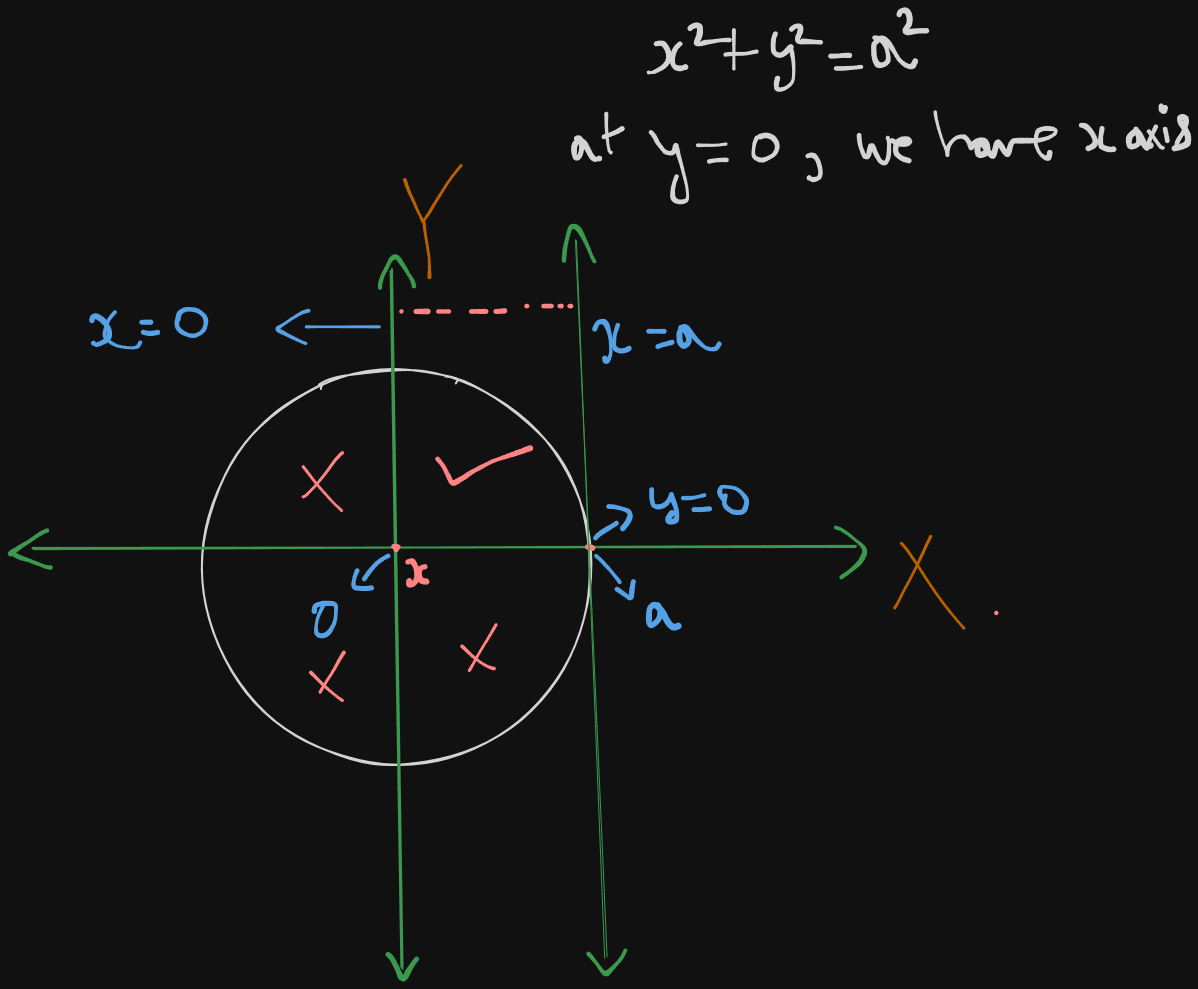 x²+y²=a²
at y=0, we have x axis
Y
x=0
x=a
y=0
x
0
a
X